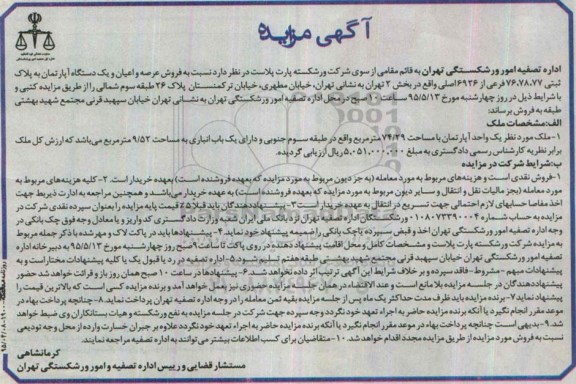 آگهی مزایده
اداره تصفیه امور ورشکستگی تهران به قائم مقامی از سوی شرکت ورشکسته پارت پلاست در نظر دارد نسبت به فروش عرصه و اعیان و یک دستگاه آپارتمان به پلاک
ثبتی ۷۶،۷۸،۷۷ فرعی از ۶۹۲۶ اصلی واقع در بخش ۲ تهران به نشانی تهران، خیابان مطهری، خیابان ترکمنستان پلاک ۲۶ طبقه سوم شمالی را از طریق مزایده کتبی و
با شرایط ذیل در روز چهارشنبه مورخ ۹۵/۵/۱۳ ساعت ۱۰ صبح در محل اداره تصفیه امور ورشکستگی تهران به نشانی تهران خیابان سپهبد قرنی مجتمع شهید بهشتی
طبقه به فروش برساند:
الف: مشخصات ملک
۱- ملک مورد نظر یک واحد آپارتمان با مساحت ۷۴/۳۹ مترمربع واقع در طبقه سوم جنوبی و دارای یک باب انباری به مساحت ۹/۵۲ مترمربع می‌باشد که ارزش کل ملک
برابر نظریه کارشناس رسمی دادگستری به مبلغ ۵،۰۵۱،۰۰۰،۰۰۰ ریال ارزیابی گردیده.
ب: شرایط شرکت در مزایده
۱- فروش نقدی است و هزینه‌های مربوط به مورد معامله (به جز دیون مربوط به مورد مزایده که بعهده فروشنده است) بعهده خریدار است. ۲- کلیه هزینه‌های مربوط به
مورد معامله (بجز مالیات نقل و انتقال و سایر دیون مربوط به مورد مزایده که بعهده فروشنده است) به عهده خریدار می‌باشد و همچنین مراجعه به ادارت ذیربط جهت
اخذ مفاصا حسابهای لازم احتمالی جهت تسریع در انتقال به عهده خریدار است ۳- پیشنهاددهندگان باید قبلا ۲۵٪ قیمت پایه مزایده را بعنوان سپرده نقدی شرکت در
مزایده به حساب شماره ۰۱۰۸۰۷۳۳۹۰۰۰۴ ورشکستگان اداره تصفیه تهران نزد بانک ملی ایران شعبه وزارت دادگستری کد واریز و یا معادل وجه فوق چک بانکی در
وجه اداره تصفیه امور ورشکستگی تهران اخذ و قبض سپرده یا چک بانکی را ضمیمه پیشنهاد خود نمایند. ۴- پیشنهادها باید در پاکت لاک و مهر شده با ذکر جمله مربوط
به مزایده شرکت ورشکسته پارت پلاست و مشخصات کامل و محل اقامت پیشنهاد دهنده در روی پاکت تا ساعت ۹ صبح روز چهارشنبه مورخ ۹۵/۵/۱۳ به دبیرخانه اداره
تصفیه امور ورشکستگی تهران خیابان سپهبد قرنی مجتمع شهید بهشتی طبقه هفتم تسلیم شود. ۵- اداره تصفیه در رد یا قبول یک یا کلیه پیشنهادات مختار است و به
پیشنهادات مبهم - مشروط - فاقد سپرده و بر خلاف شرایط این آگهی ترتیب اثر داده نخواهد شد. ۶- پیشنهادها در ساعت ۱۰ صبح همان روز باز و قرائت خواهد شد حضور
پیشنهاددهندگان در جلسه مزایده بلامانع است و عدد الاقتضاء در همان جلسه مزایده حضوری نیز بعمل خواهد آمد و برنده مزایده کسی است که بالاترین قیمت را
پیشنهاد نماید ۷- برنده مزایده باید ظرف مدت حداکثر یک ماه پس از جلسه مزایده بقیه ثمن معامله را در وجه اداره تصفیه تهران پرداخت نماید. ۸- چنانچه پرداخت بهاء در
موعد مقرر انجام نگیرد یا آنکه برنده مزایده حاضر به اجراء تعهد خود نگردد وجه سپرده جهت شرکت در جلسه مزایده به نفع ورشکسته و هیات بستانکاران وی ضبط خواهد
شد. ۹- بدیهی است چنانچه پرداخت بهاء در موعد مقرر انجام نگیرد یا آنکه برنده مزایده حاضر به اجراء تعهد خود نگردد علاوه بر جبران خسارت وارده از محل وجه تودیعی
نسبت به فروش مورد مزایده از طریق مزایده مجدد اقدام خواهد شد. ۱۰- متقاضیان برای کسب اطلاعات بیشتر می توانند به اداره تصفیه مراجعه نمایند.
کرمانشاهی
مستشار قضایی و رییس اداره تصفیه و امور ورشکستگی تهران